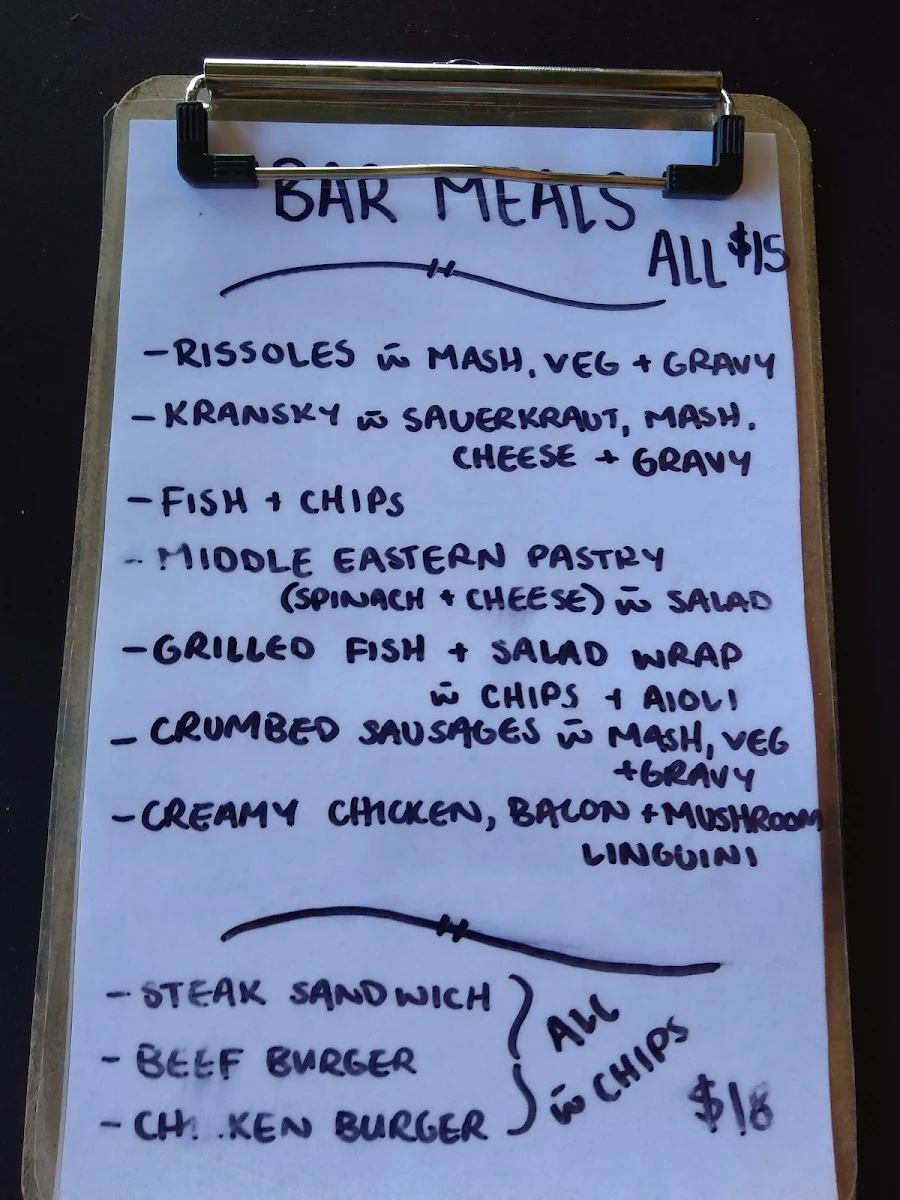 BAR MEALS
ALL $15
- RISSOLES w̄ MASH, VEG + GRAVY
- KRANSKY w̄ SAUERKRAUT, MASH,
CHEESE + GRAVY
- FISH + CHIPS
- MIDDLE EASTERN PASTRY
(SPINACH + CHEESE) w̄ SALAD
- GRILLED FISH + SALAD WRAP
w̄ CHIPS + AIOLI
- CRUMBED SAUSAGES w̄ MASH, VEG
+ GRAVY
- CREAMY CHICKEN, BACON + MUSHROOM
LINGUINI
- STEAK SANDWICH
- BEEF BURGER
- CHICKEN BURGER
ALL
w̄ CHIPS
$18